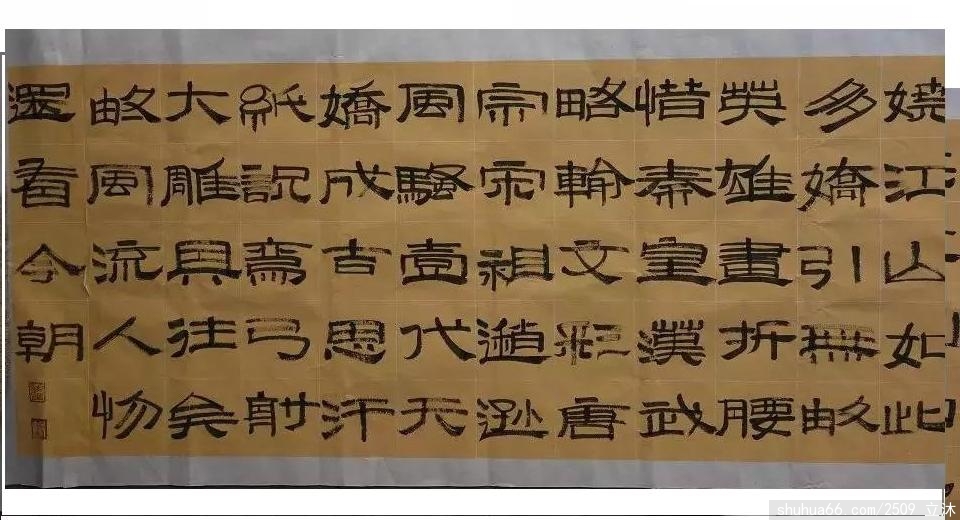 嬈江山如此
多嬌引無
英雄畫折腰
惜秦皇漢武
略輸文彩唐
宗宋祖遜
風騷壹代天
嬌成吉思汗
紙焉弓射
大雕具往矣
風流人物
還看今朝
shuhua66.com/2509_立沐